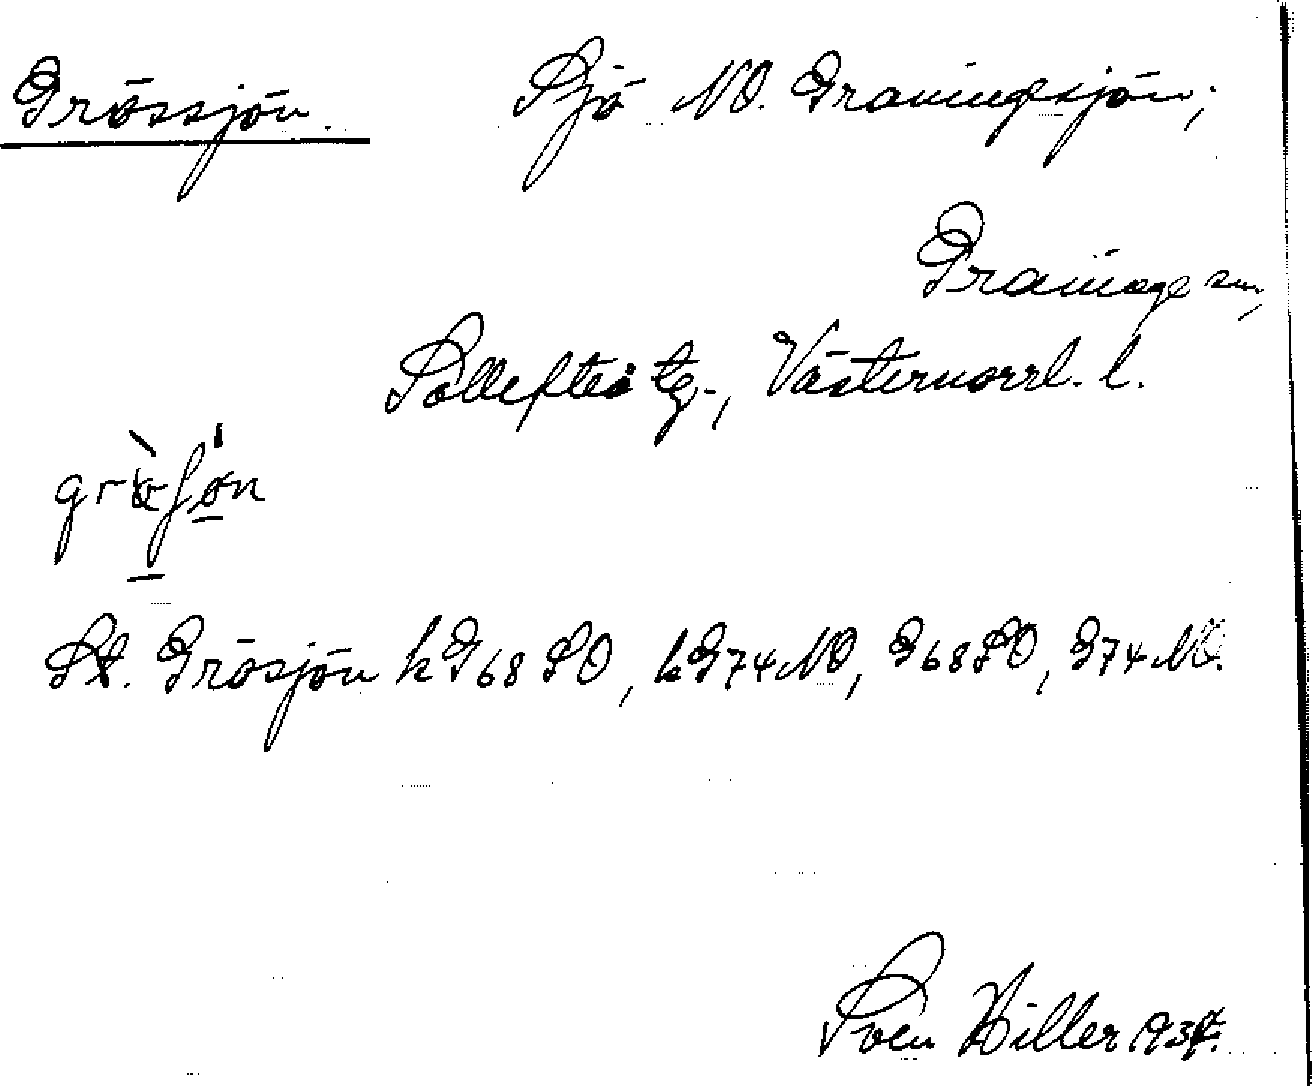 Grössjön. Sjö NO. Graningesjön;
Graninge sn,
Sollefteå tg., Västernorrl. l.
St. Grösjön k G68 SO, k G74 NO, G68 SO, G74 NO.
Sven Hiller